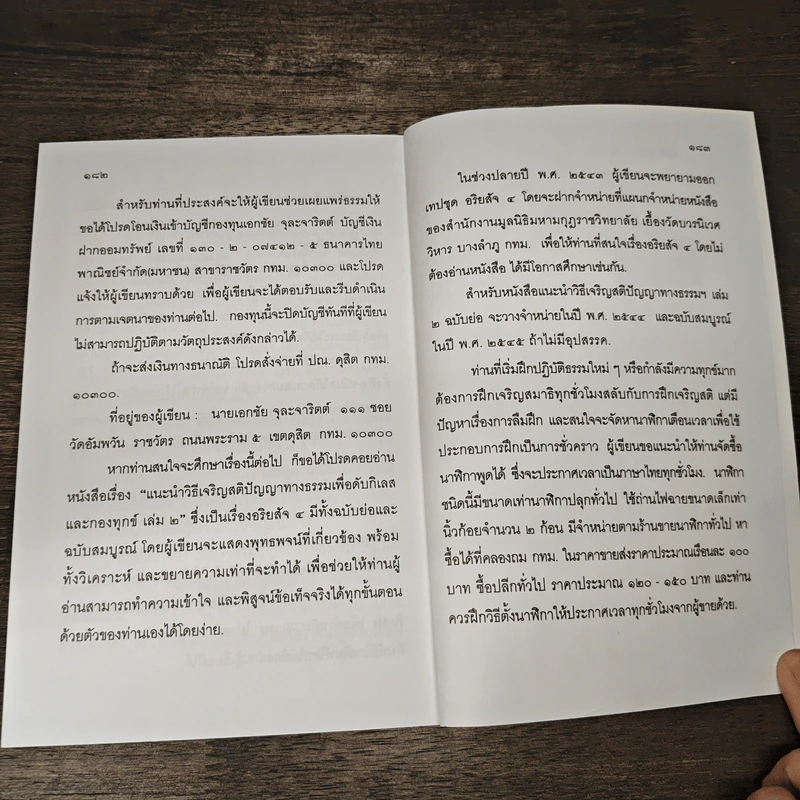 ๑๘๒
สำหรับท่านที่ประสงค์จะให้ผู้เขียนช่วยเผยแพร่ธรรมให้
ขอได้โปรดโอนเงินเข้าบัญชีกองทุนเอกชัย จุละจาริตต์ บัญชีเงิน
ฝากออมทรัพย์ เลขที่ ๑๓๐ - ๒ - ๐๗๔๑๒ - ๕ ธนาคารไทย
พาณิชย์จำกัด(มหาชน) สาขาราชวัตร กทม. ๑๐๓๐๐ และโปรด
แจ้งให้ผู้เขียนทราบด้วย เพื่อผู้เขียนจะได้ตอบรับและรีบดำเนิน
การตามเจตนาของท่านต่อไป. กองทุนนี้จะปิดบัญชีทันทีที่ผู้เขียน
ไม่สามารถปฏิบัติตามวัตถุประสงค์ดังกล่าวได้.
ถ้าจะส่งเงินทางธนาณัติ โปรดสั่งจ่ายที่ ปณ. ดุสิต กทม.
๑๐๓๐๐.
ที่อยู่ของผู้เขียน : นายเอกชัย จุละจาริตต์ ๑๑๑ ซอย
วัดอัมพวัน ราชวัตร ถนนพระราม ๕ เขตดุสิต กทม. ๑๐๓๐๐
หากท่านสนใจจะศึกษาเรื่องนี้ต่อไป ก็ขอได้โปรดคอยอ่าน
หนังสือเรื่อง “แนะนำวิธีเจริญสติปัญญาทางธรรมเพื่อดับกิเลส
และกองทุกข์ เล่ม ๒” ซึ่งเป็นเรื่องอริยสัจ ๔ มีทั้งฉบับย่อและ
ฉบับสมบูรณ์ โดยผู้เขียนจะแสดงพุทธพจน์ที่เกี่ยวข้อง พร้อม
ทั้งวิเคราะห์ และขยายความเท่าที่จะทำได้ เพื่อช่วยให้ท่านผู้
อ่านสามารถทำความเข้าใจ และพิสูจน์ข้อเท็จจริงได้ทุกขั้นตอน
ด้วยตัวของท่านเองได้โดยง่าย.
๑๘๓
ในช่วงปลายปี พ.ศ. ๒๕๔๓ ผู้เขียนจะพยายามออก
เทปชุด อริยสัจ ๔ โดยจะฝากจำหน่ายที่แผนกจำหน่ายหนังสือ
ของสำนักงานมูลนิธิมหามกุฏราชวิทยาลัย เยื้องวัดบวรนิเวศ
วิหาร บางลำภู กทม. เพื่อให้ท่านที่สนใจเรื่องอริยสัจ ๔ โดยไม่
ต้องอ่านหนังสือ ได้มีโอกาสศึกษาเช่นกัน.
สำหรับหนังสือแนะนำวิธีเจริญสติปัญญาทางธรรมฯ เล่ม
๒ ฉบับย่อ จะวางจำหน่ายในปี พ.ศ. ๒๕๔๔ และฉบับสมบูรณ์
ในปี พ.ศ. ๒๕๔๕ ถ้าไม่มีอุปสรรค.
ท่านที่เริ่มฝึกปฏิบัติธรรมใหม่ ๆ หรือกำลังมีความทุกข์มาก
ต้องการฝึกเจริญสมาธิทุกชั่วโมงสลับกับการฝึกเจริญสติ แต่มี
ปัญหาเรื่องการลืมฝึก และสนใจจะจัดหานาฬิกาเตือนเวลาเพื่อใช้
ประกอบการฝึกเป็นการชั่วคราว ผู้เขียนขอแนะนำให้ท่านจัดซื้อ
นาฬิกาพูดได้ ซึ่งจะประกาศเวลาเป็นภาษาไทยทุกชั่วโมง. นาฬิกา
ชนิดนี้มีขนาดเท่านาฬิกาปลุกทั่วไป ใช้ถ่านไฟฉายขนาดเล็กเท่า
นิ้วก้อยจำนวน ๒ ก้อน มีจำหน่ายตามร้านขายนาฬิกาทั่วไป หา
ซื้อได้ที่คลองถม กทม. ในราคาขายส่งราคาประมาณเรือนละ ๑๐๐
บาท ซื้อปลีกทั่วไป ราคาประมาณ ๑๒๐ - ๑๕๐ บาท และท่าน
ควรฝึกวิธีตั้งนาฬิกาให้ประกาศเวลาทุกชั่วโมงจากผู้ขายด้วย.